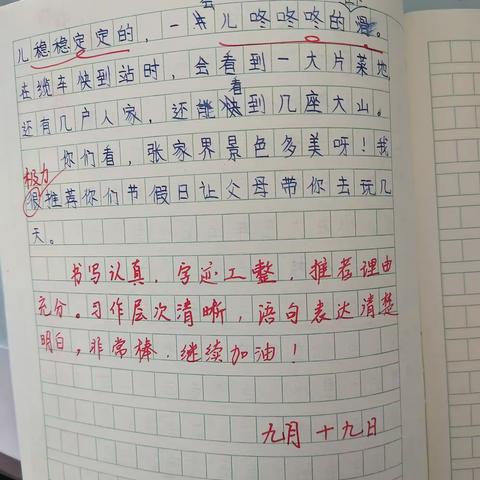 儿稳稳定定的，一会儿咚咚咚的滑。
在缆车快到站时，会看到一大片菜地
还有几户人家，还能看到几座大山。
你们看，张家界景色多美呀！我
极力
很推荐你们节假日让父母带你去玩几
天。
书写认真，字迹工整，推荐理由
充分。习作层次清晰，语句表达清楚
明白，非常棒，继续加油！
九月十九日